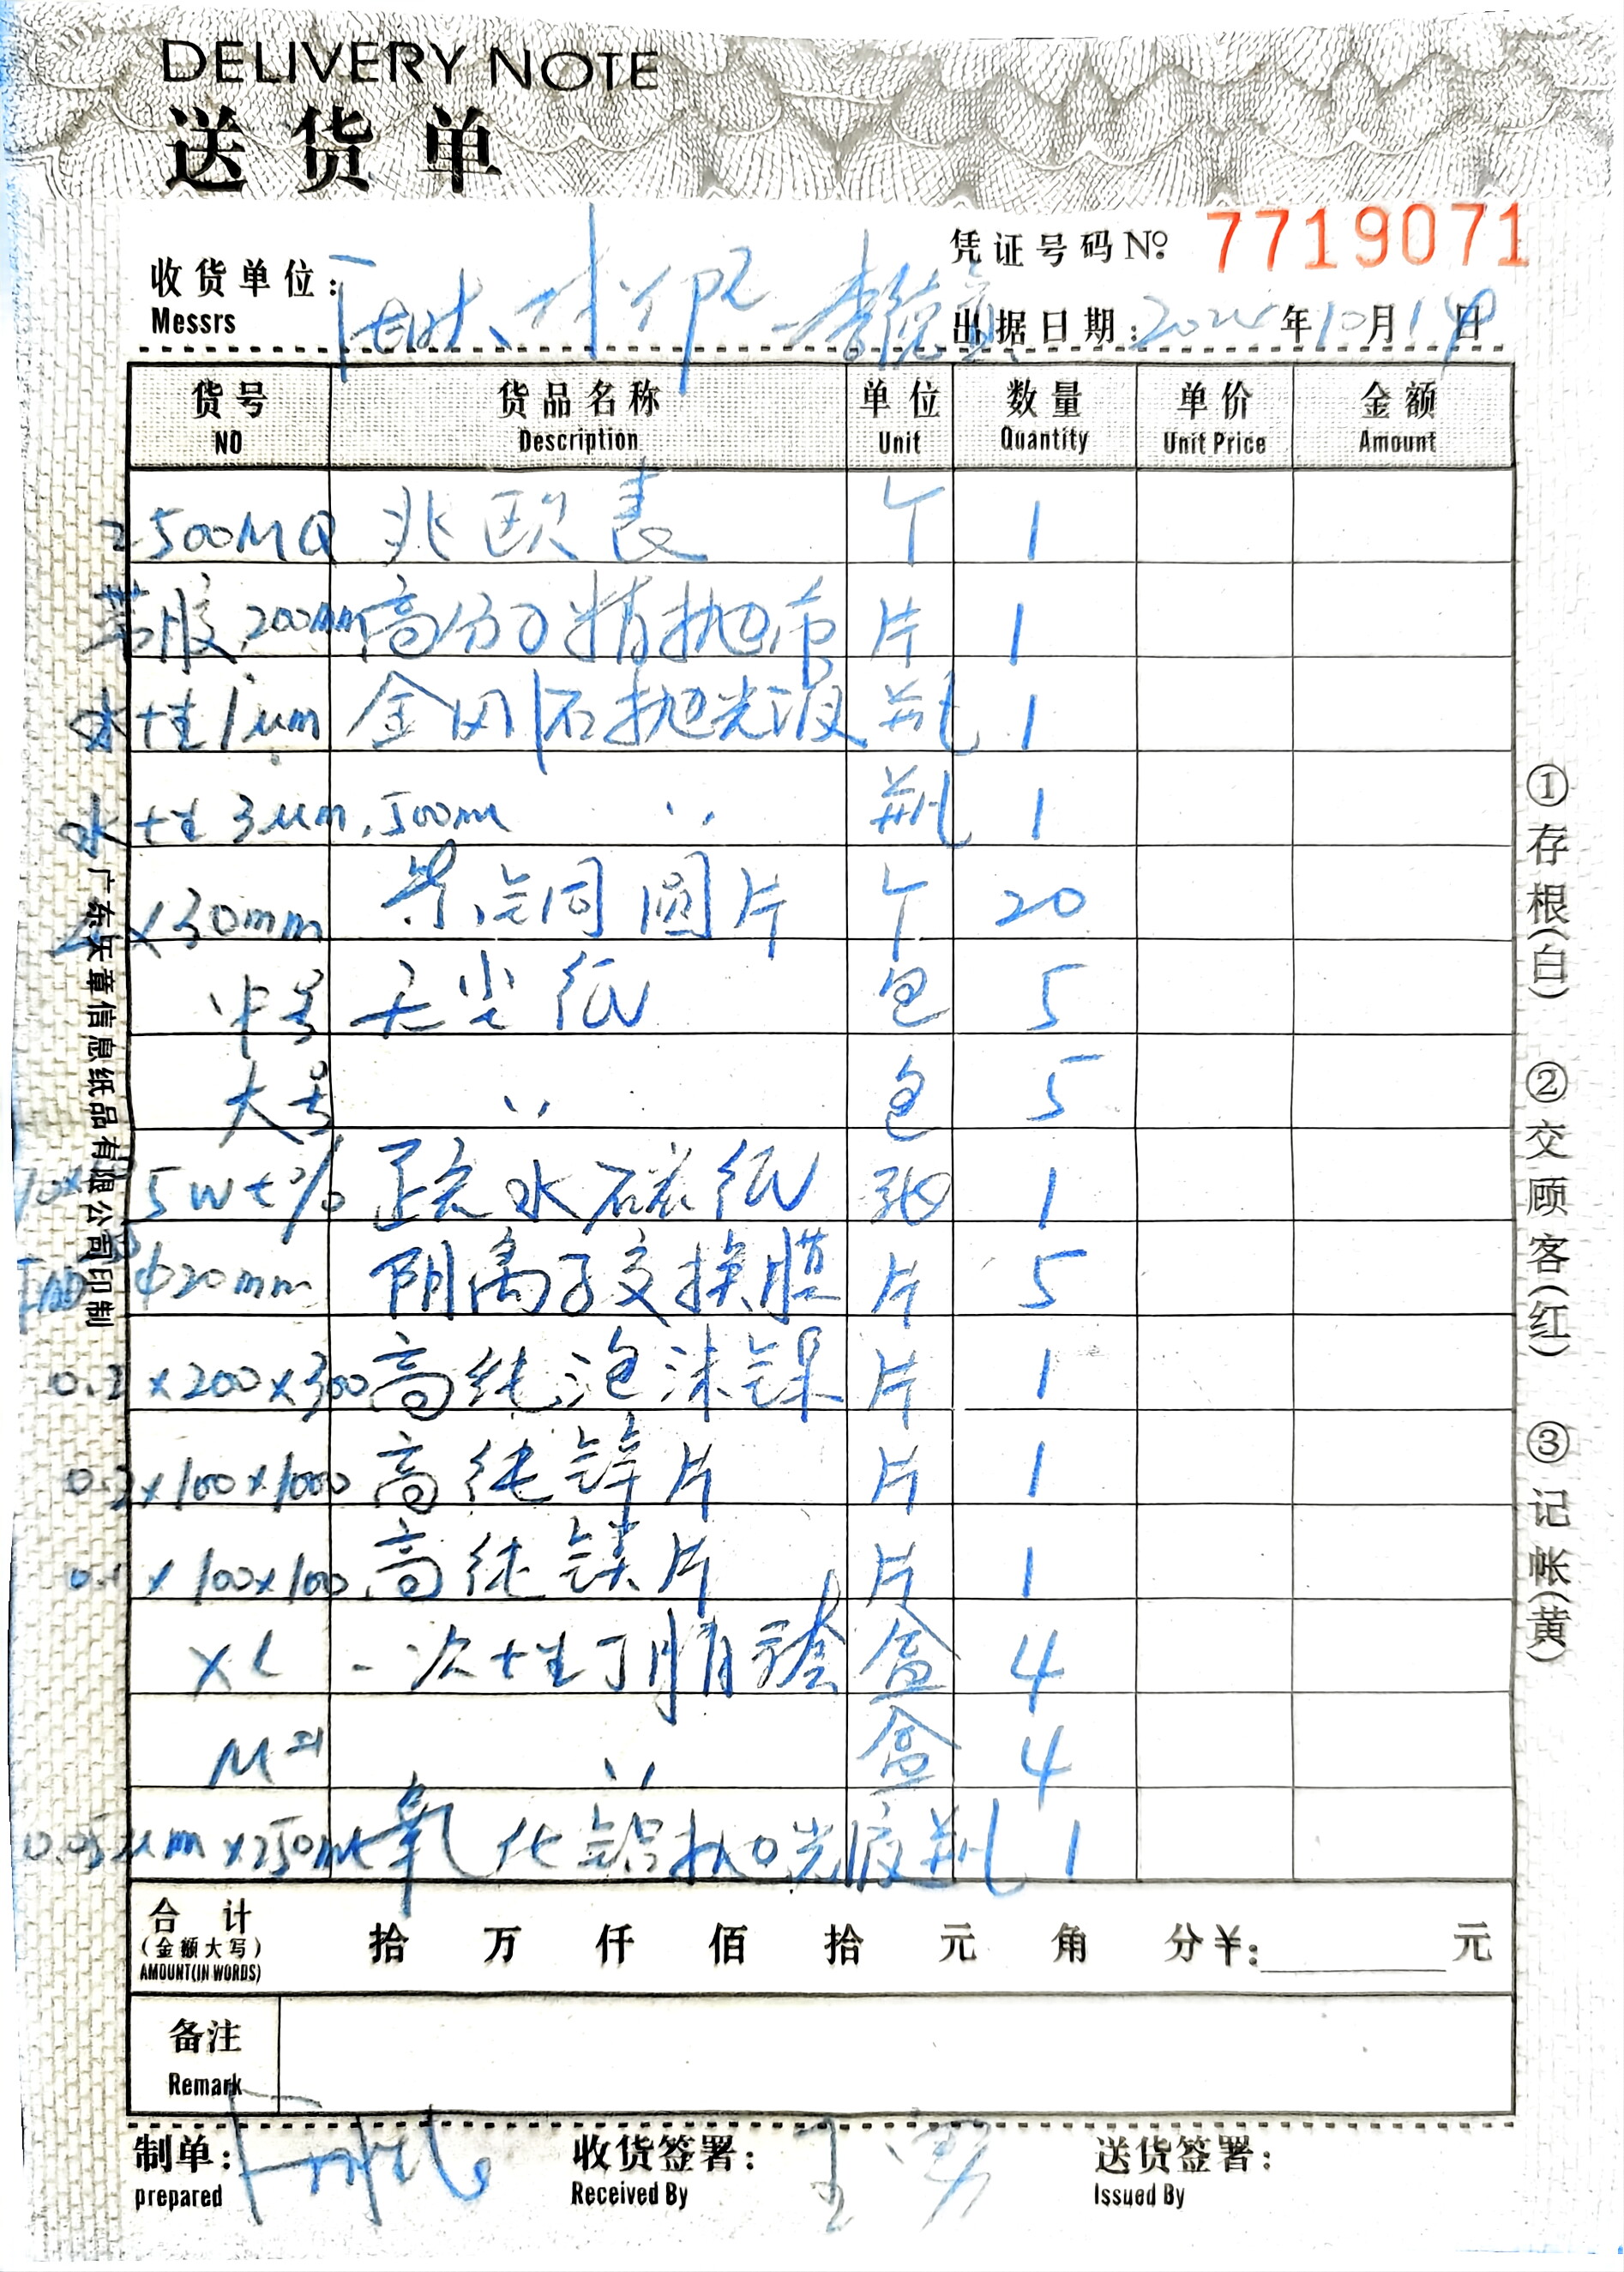 DELIVERY NOTE
送货单
凭证号码 № 7719071
收货单位:
Messrs
出据日期: 年10月14日
货号 货品名称 单位 数量 单价 金额
NO Description Unit Quantity Unit Price Amount
2500MΩ 兆欧表 个 1
带胶 200mm 高分子精抛布 片 1
水性 1μm 金刚石抛光液 瓶 1
水性 3μm, 500ml 〃 瓶 1
×30mm 铜圆片 个 20
中号 无尘纸 包 5
大号 〃 包 5
5wt% 疏水碳纸 张 1
φ20mm 阴离子交换膜 片 5
×200×300 高纯泡沫镍 片 1
×100×1000 高纯锌片 片 1
0.1×100×100 高纯镁片 片 1
XL 一次性丁腈手套 盒 4
M 〃 盒 4
0.05μm×250ml 氧化铝抛光液 瓶 1
合计
(金额大写)
AMOUNT(IN WORDS)
拾 万 仟 佰 拾 元 角 分 ¥: 元
备注
Remark
制单:
prepared
收货签署:
Received By
送货签署:
Issued By
广东天章信息纸品有限公司印制
①存根(白) ②交顾客(红) ③记帐(黄)